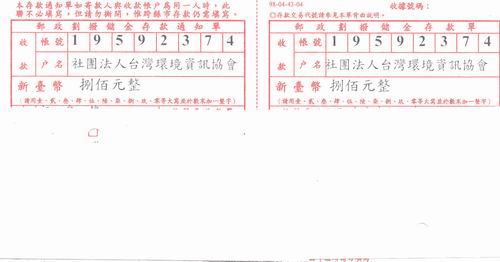 本存款通知單如寄款人與收款帳戶為同一人時，此
聯不必填寫，但請勿撕開，惟跨縣市存款仍需填寫。
郵政劃撥儲金存款通知單
收 帳號 1 9 5 9 2 3 7 4
款 户名 社團法人台灣環境資訊協會
新臺幣 捌佰元整
(請用壹、貳、叁、肆、伍、陸、柒、捌、玖、零等大寫並於數末加一整字)
98-04-43-04
收據號碼：
◎存款交易代號請參見本單背面說明。
郵政劃撥儲金存款單
收 帳號 1 9 5 9 2 3 7 4
款 户名 社團法人台灣環境資訊協會
新臺幣 捌佰元整
(請用壹、貳、叁、肆、伍、陸、柒、捌、玖、零等大寫並於數末加一整字)